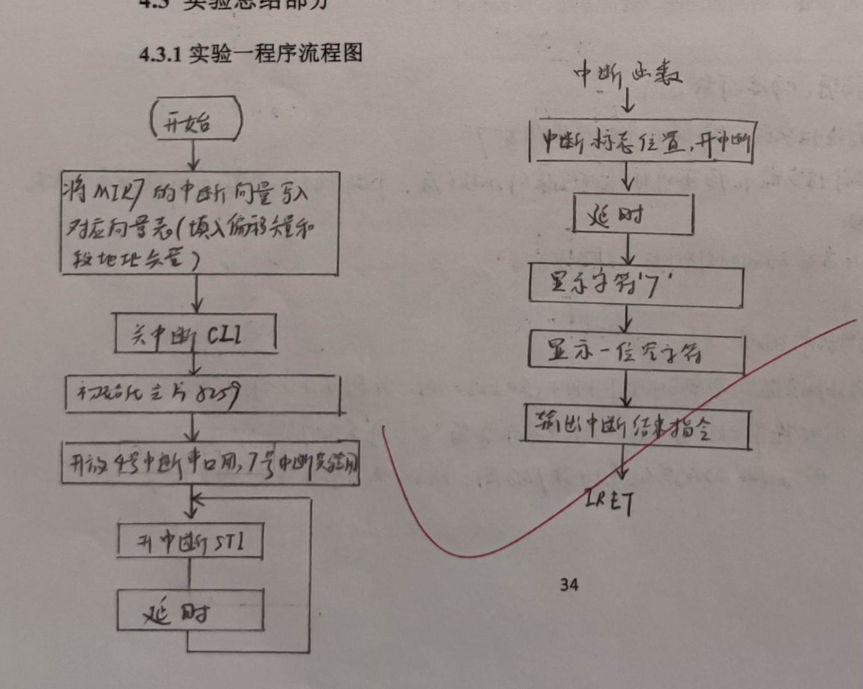 4.3 实验总结部分
4.3.1 实验一程序流程图
开始
将MIR7的中断向量写入
对应向量表(填入偏移矢量和
段地址矢量)
关中断CLI
初始化主片8259
开放4号中断串口用,7号中断实验用
开中断STI
延时
中断函数
中断标志位置,开中断
延时
显示字符'7'
显示一位空字符
输出中断结束指令
IRET
34